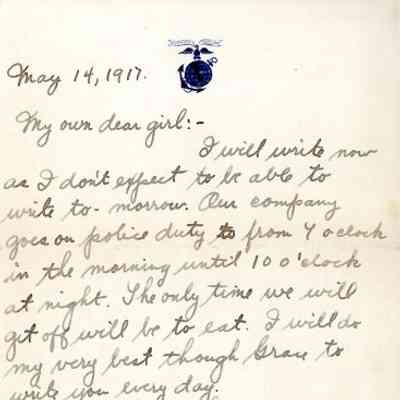 May 14, 1917.
My own dear girl:-
I will write now
as I don't expect to be able to
write to-morrow. Our company
goes on police duty to from 7 o'clock
in the morning until 10 o'clock
at night. The only time we will
get off will be to eat. I will do
my very best though Grace to
write you every day.